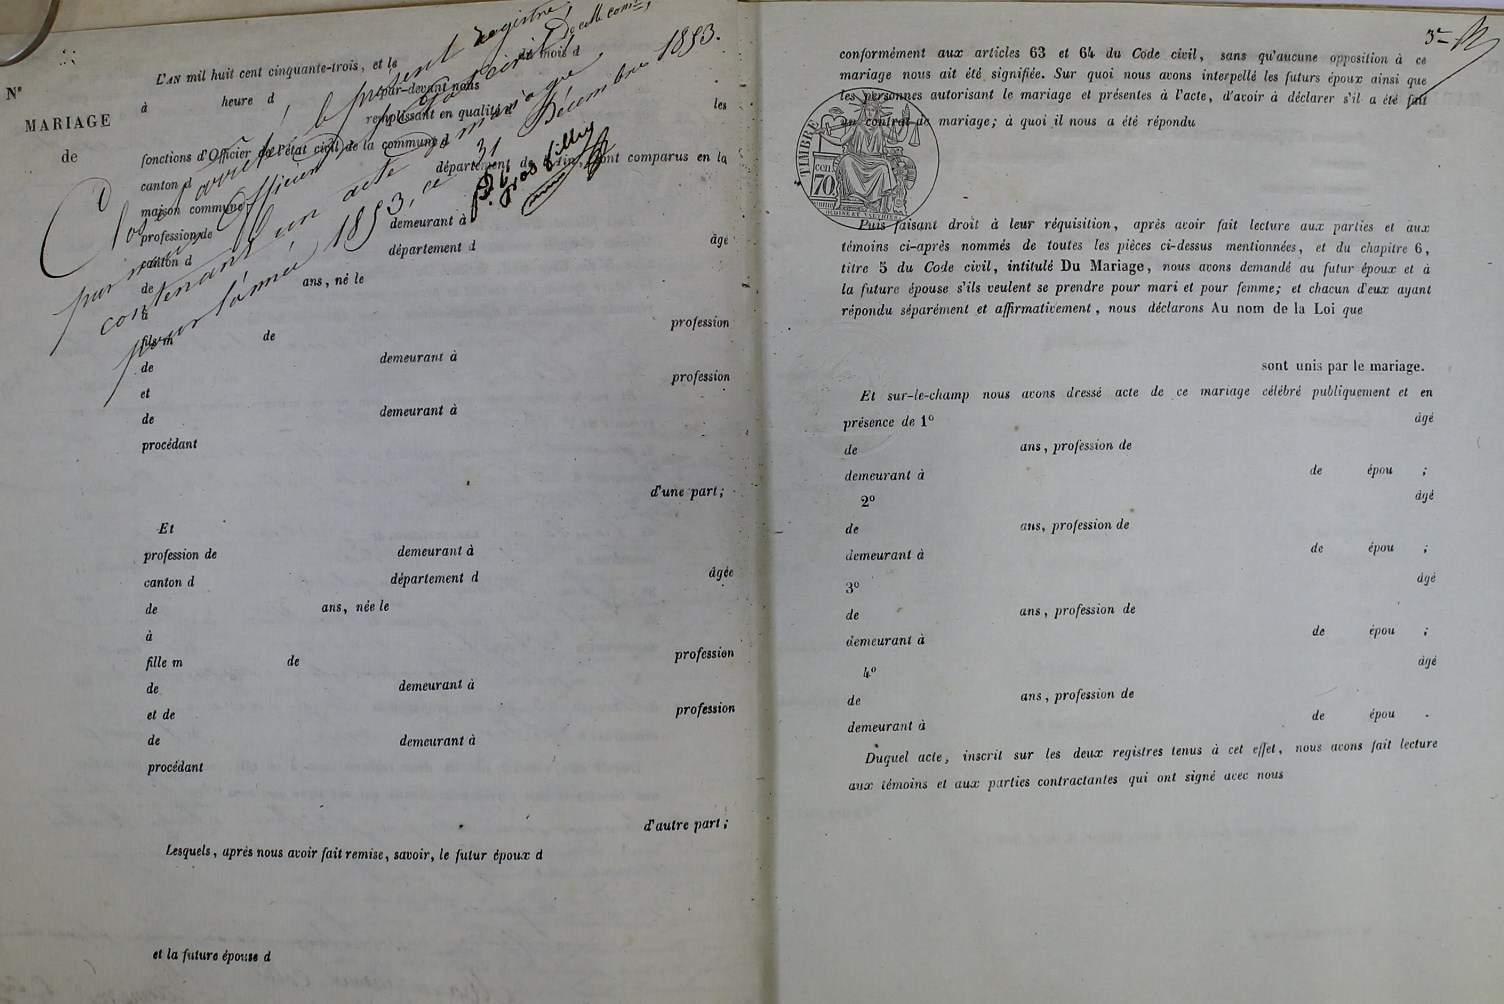 L'AN mil huit cent cinquante-trois, et le du mois d
N°
à heure d par-devant nous
MARIAGE
remplissant en qualité les
de
fonctions d'Officier de l'état civil de la commune d
canton d département de ont comparus en la
maison commune
profession de demeurant à
canton d département d âgé
de ans, né le
à
fils m de profession
de demeurant à
et profession
de demeurant à
procédant
d'une part;
Et
profession de demeurant à
canton d département d âgée
de ans, née le
à
fille m de profession
de demeurant à
et de profession
de demeurant à
procédant
d'autre part;
Lesquels, après nous avoir fait remise, savoir, le futur époux d
et la future épouse d
Clos et arrêté le présent registre,
par nous Officier de l'état civil de cette com.ne,
contenant un acte de mariage
pour l'année 1853, ce 31 Décembre 1853.
3e
conformément aux articles 63 et 64 du Code civil, sans qu'aucune opposition à ce
mariage nous ait été signifiée. Sur quoi nous avons interpellé les futurs époux ainsi que
les personnes autorisant le mariage et présentes à l'acte, d'avoir à déclarer s'il a été fait
un contrat de mariage; à quoi il nous a été répondu
TIMBRE
cen.
70
Puis faisant droit à leur réquisition, après avoir fait lecture aux parties et aux
témoins ci-après nommés de toutes les pièces ci-dessus mentionnées, et du chapitre 6,
titre 5 du Code civil, intitulé Du Mariage, nous avons demandé au futur époux et à
la future épouse s'ils veulent se prendre pour mari et pour femme; et chacun d'eux ayant
répondu séparément et affirmativement, nous déclarons Au nom de la Loi que
sont unis par le mariage.
Et sur-le-champ nous avons dressé acte de ce mariage célébré publiquement et en
présence de 1° âgé
de ans, profession de
demeurant à de épou ;
2° âgé
de ans, profession de
demeurant à de épou ;
3° âgé
de ans, profession de
demeurant à de épou ;
4° âgé
de ans, profession de
demeurant à de épou .
Duquel acte, inscrit sur les deux registres tenus à cet effet, nous avons fait lecture
aux témoins et aux parties contractantes qui ont signé avec nous